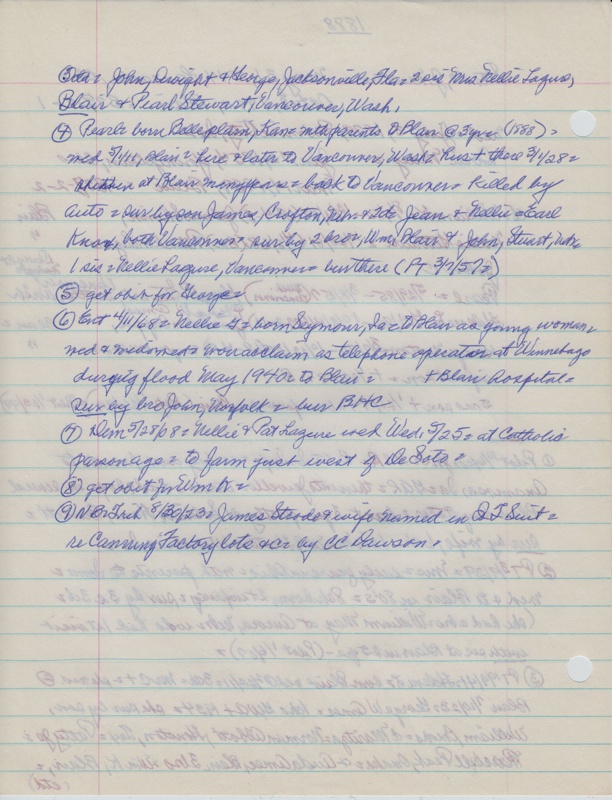 ③ da = John, Dwight & George, Jacksonville, Fla = 2 sis Mrs Nellie Lagure,
Blair & Pearl Stewart, Vancouver, Wash.
④ Pearl = born Belle plain, Kan = mth parents to Blair @ 3 yrs = (1888) =
med 5/1/11, Blair = here & later to Vancouver, Wash = hus + there 3/1/28 =
at Blair many years = back to Vancouver = killed by
auto = sur by son James, Crofton, Nebr & 2da Jean & Nellie = Earl
Knox, both Vancouver = sur by 2 bros, Wm, Blair & John, Stuart, Nebr
1 sis = Nellie Lagure, Vancouver = bur there (PT 3/7/57 =)
⑤ get obit for George =
⑥ Ent 4/11/68 = Nellie = born Seymour, Ia = to Blair as young woman =
med & widowed = won acclaim as telephone operator at Winnebago
during flood May 1940 = to Blair = + Blair hospital =
sur by bro John, Norfolk = bur BHC
⑦ Dem 5/28/08 = Nellie & Pat Lagure wed Wed, 5/25 = at Catholic
parsonage = to farm just west of De Soto =
⑧ get obit for Wm K =
⑨ NB: Trib 8/30/23 = James Strode & wife named in QT Suit =
re Canning Factory lots &c = by CC Dawson.